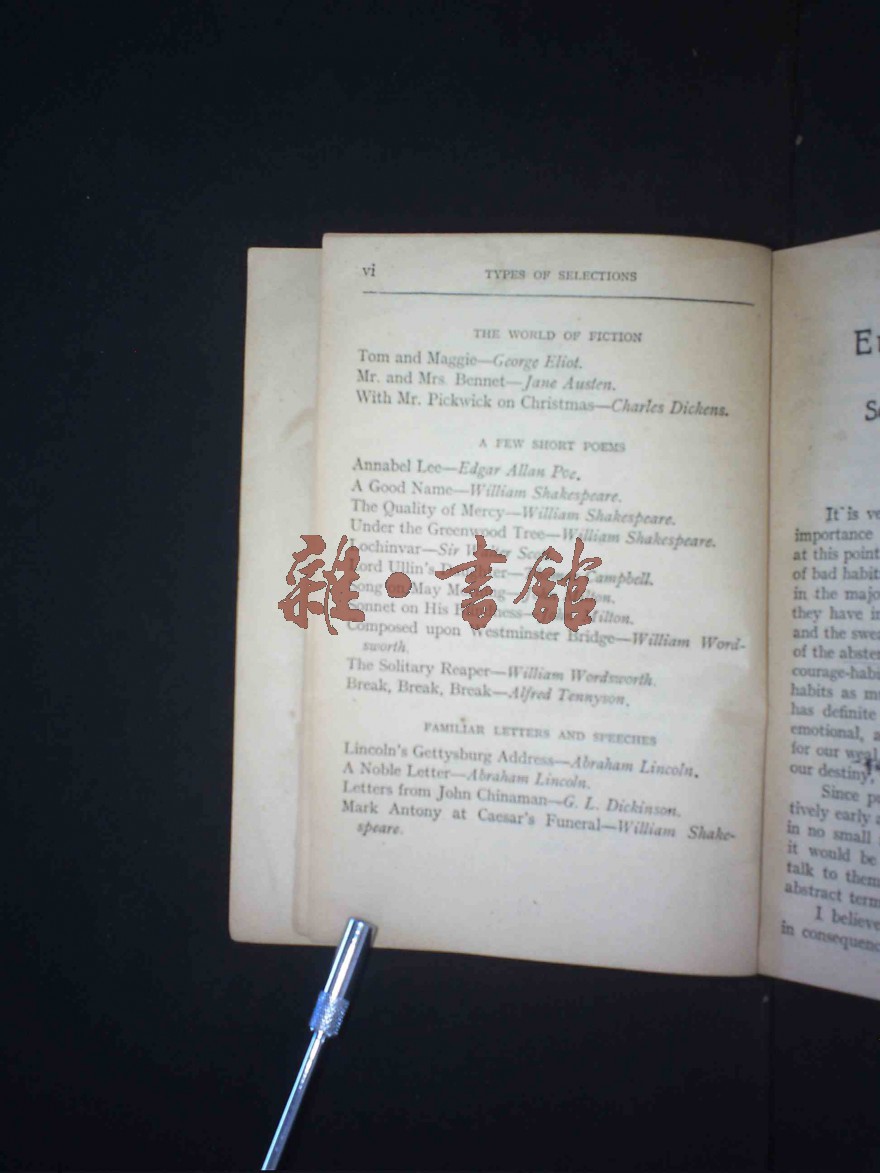 vi TYPES OF SELECTIONS
THE WORLD OF FICTION
Tom and Maggie—George Eliot.
Mr. and Mrs. Bennet—Jane Austen.
With Mr. Pickwick on Christmas—Charles Dickens.
A FEW SHORT POEMS
Annabel Lee—Edgar Allan Poe.
A Good Name—William Shakespeare.
The Quality of Mercy—William Shakespeare.
Under the Greenwood Tree—William Shakespeare.
Lochinvar—Sir Walter Scott
Lord Ullin's Daughter—Campbell.
Song on May Morning—Milton.
Sonnet on His Blindness—John Milton.
Composed upon Westminster Bridge—William Word-
sworth.
The Solitary Reaper—William Wordsworth.
Break, Break, Break—Alfred Tennyson.
FAMILIAR LETTERS AND SPEECHES
Lincoln's Gettysburg Address—Abraham Lincoln.
A Noble Letter—Abraham Lincoln.
Letters from John Chinaman—G. L. Dickinson.
Mark Antony at Caesar's Funeral—William Shake-
speare.
雜·書館
It is ve
importance
at this point
of bad habit
in the majo
they have i
and the swea
of the abste
courage-habi
habits as m
has definite
emotional, a
for our weal
our destiny,
Since p
tively early a
in no small
it would be
talk to them
abstract term
I believe
in consequenc